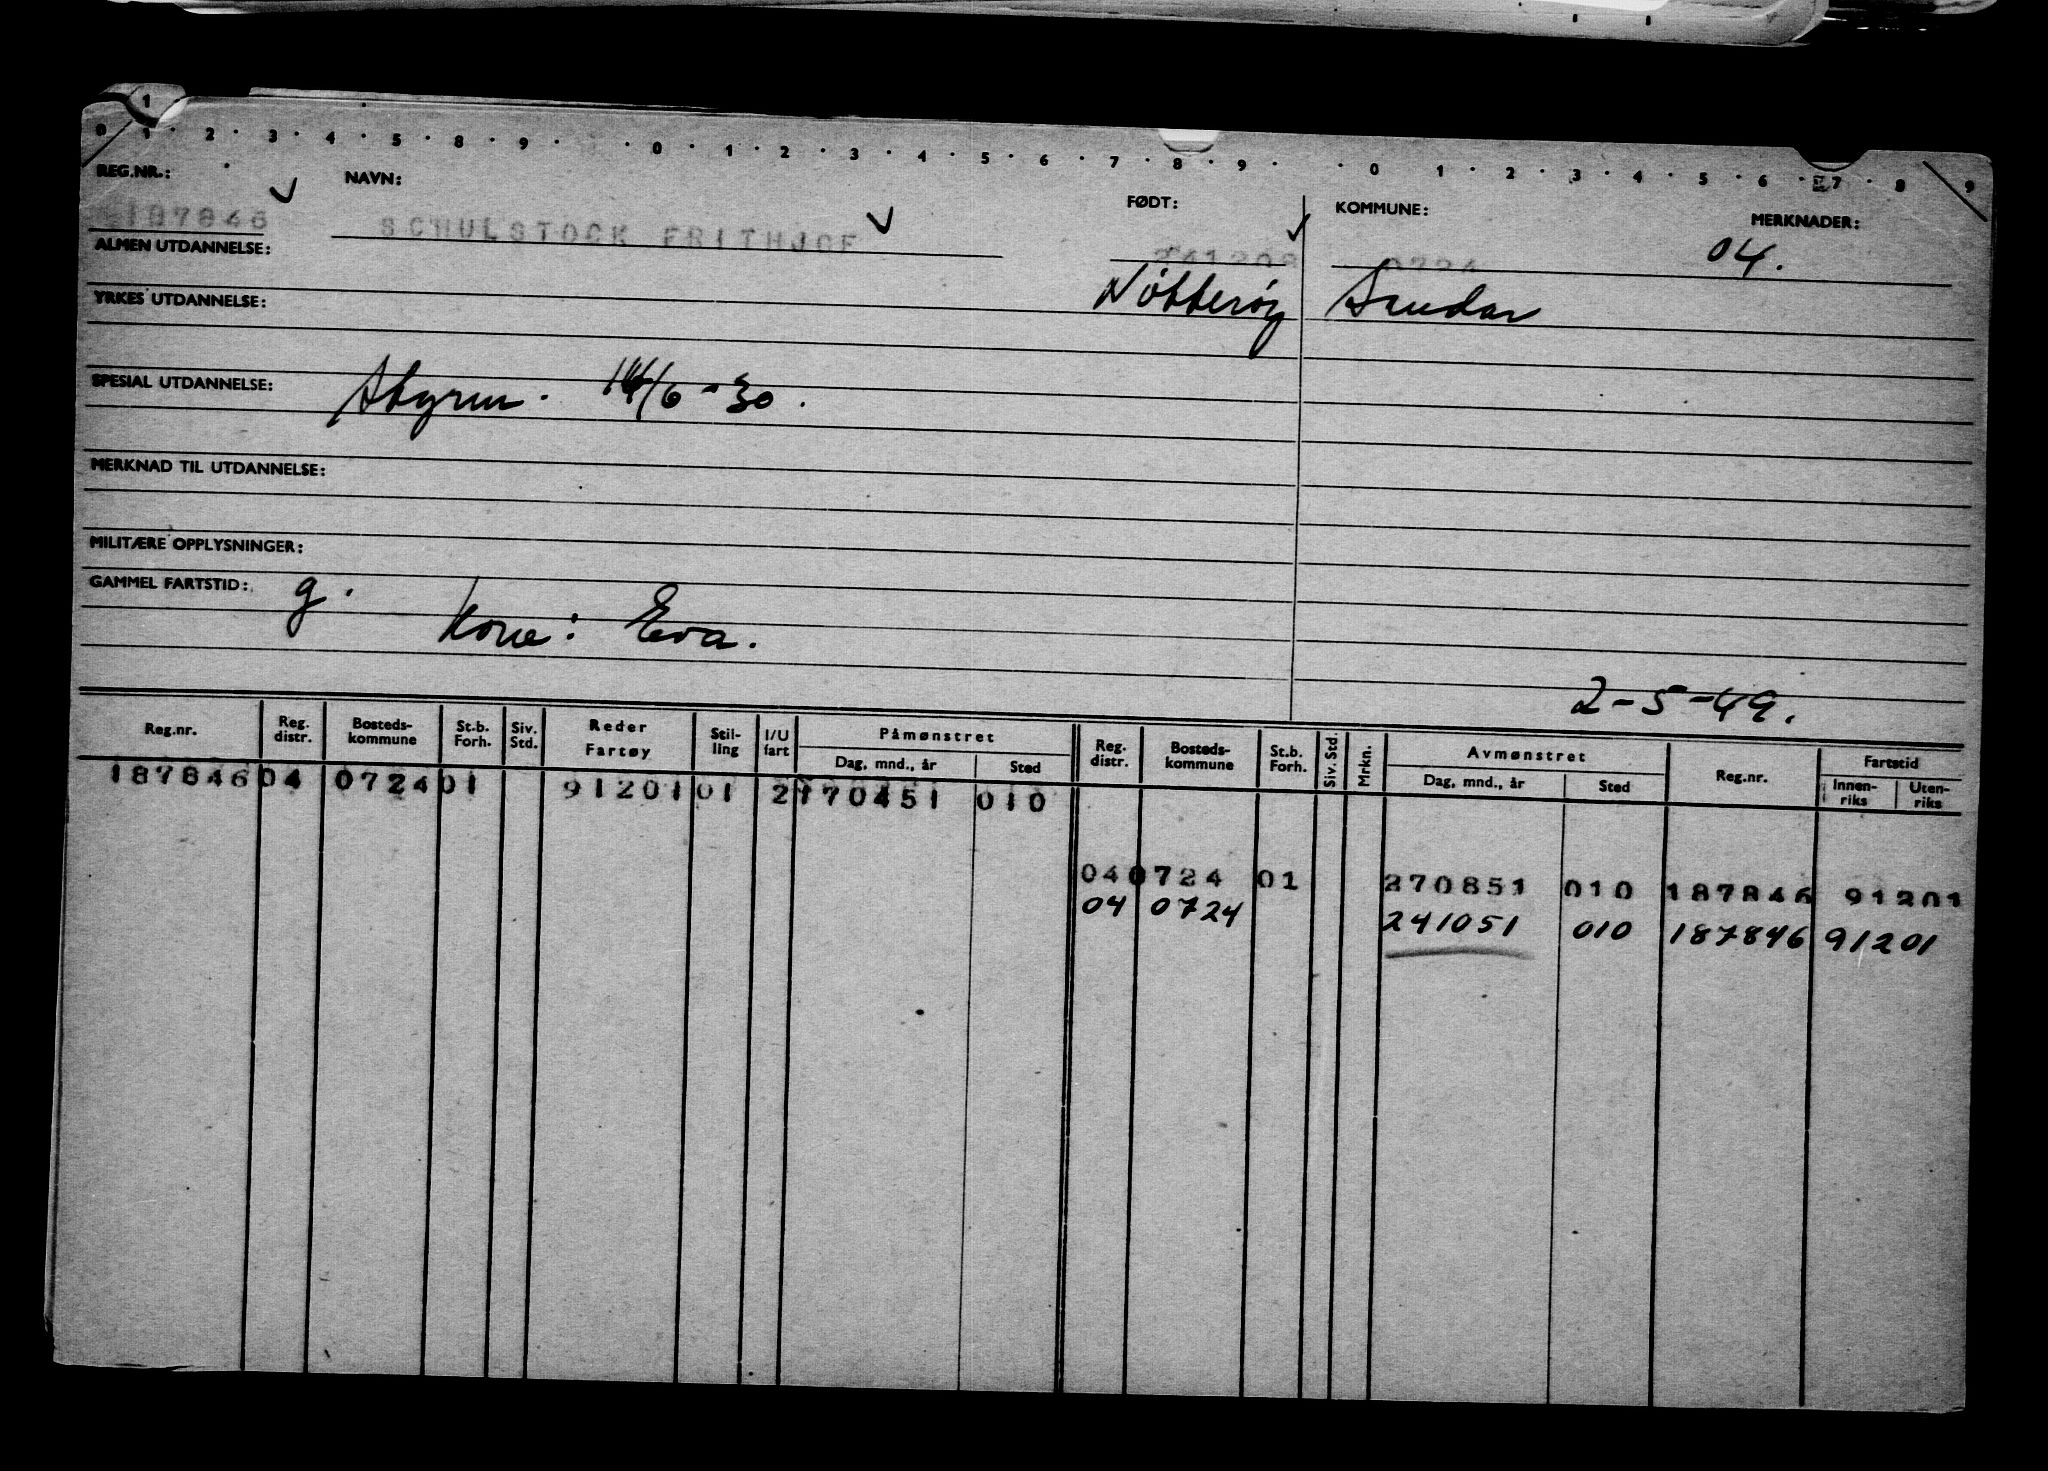 1
0 1 2 3 4 5 8 9 0 1 2 3 4 5 6 7 8 9 0 1 2 3 4 5 6 7 8 9
REG.NR.: NAVN: FØDT: KOMMUNE: MERKNADER:
187846 SCHULSTOCK FRITHJOF 241208 0724 04.
ALMEN UTDANNELSE:
Nötteröy Sandar
YRKES UTDANNELSE:
SPESIAL UTDANNELSE: Styrm. 14/6-30.
MERKNAD TIL UTDANNELSE:
MILITÆRE OPPLYSNINGER:
GAMMEL FARTSTID: g.
Kone: Eva.
2-5-49.
Reg.nr. Reg. distr. Bosteds-kommune St.b. Forh. Siv. Std. Reder Fartøy Stil-ling I/U fart Påmønstret Dag, mnd., år Sted Reg. distr. Bosteds-kommune St.b. Forh. Siv. Std. Mrkn. Avmønstret Dag, mnd., år Sted Reg.nr. Fartstid Innen-riks Uten-riks
187846 04 0724 01 91201 01 2 170451 010
04 0724 01 270851 010 187846 91201
04 0724 241051 010 187846 91201